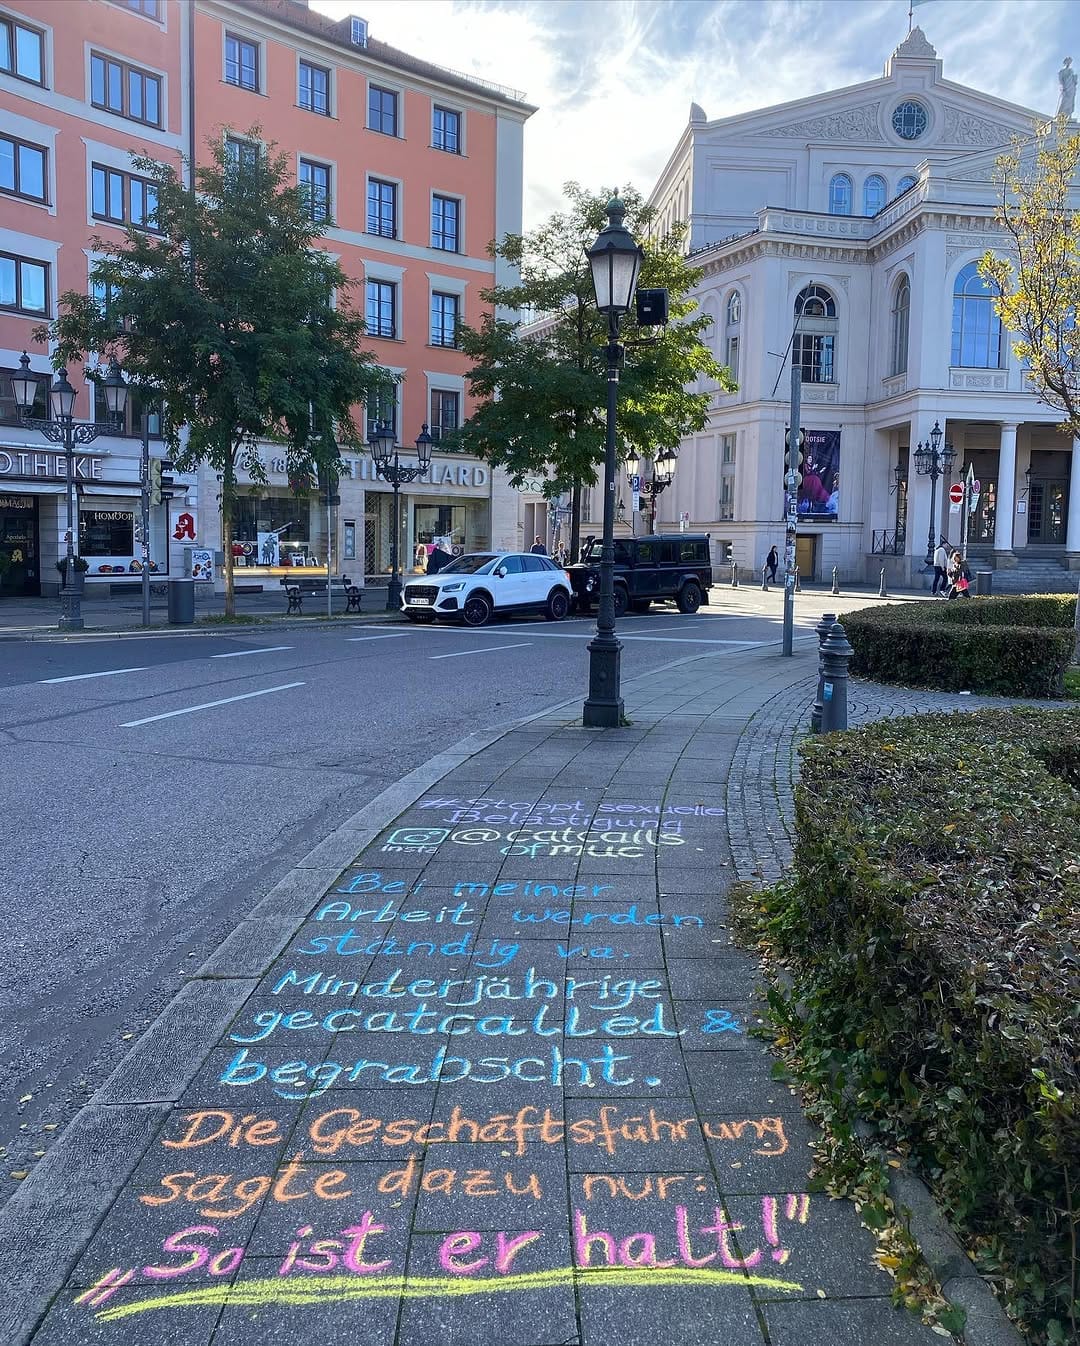 OTHEKE
HOMÖOP
TSIE
LARD
#Stoppt sexuelle
Belästigung
Insta @catcalls
of muc
Bei meiner
Arbeit werden
ständig va.
Minderjährige
gecatcalled &
begrabscht.
Die Geschäftsführung
sagte dazu nur:
„So ist er halt!”